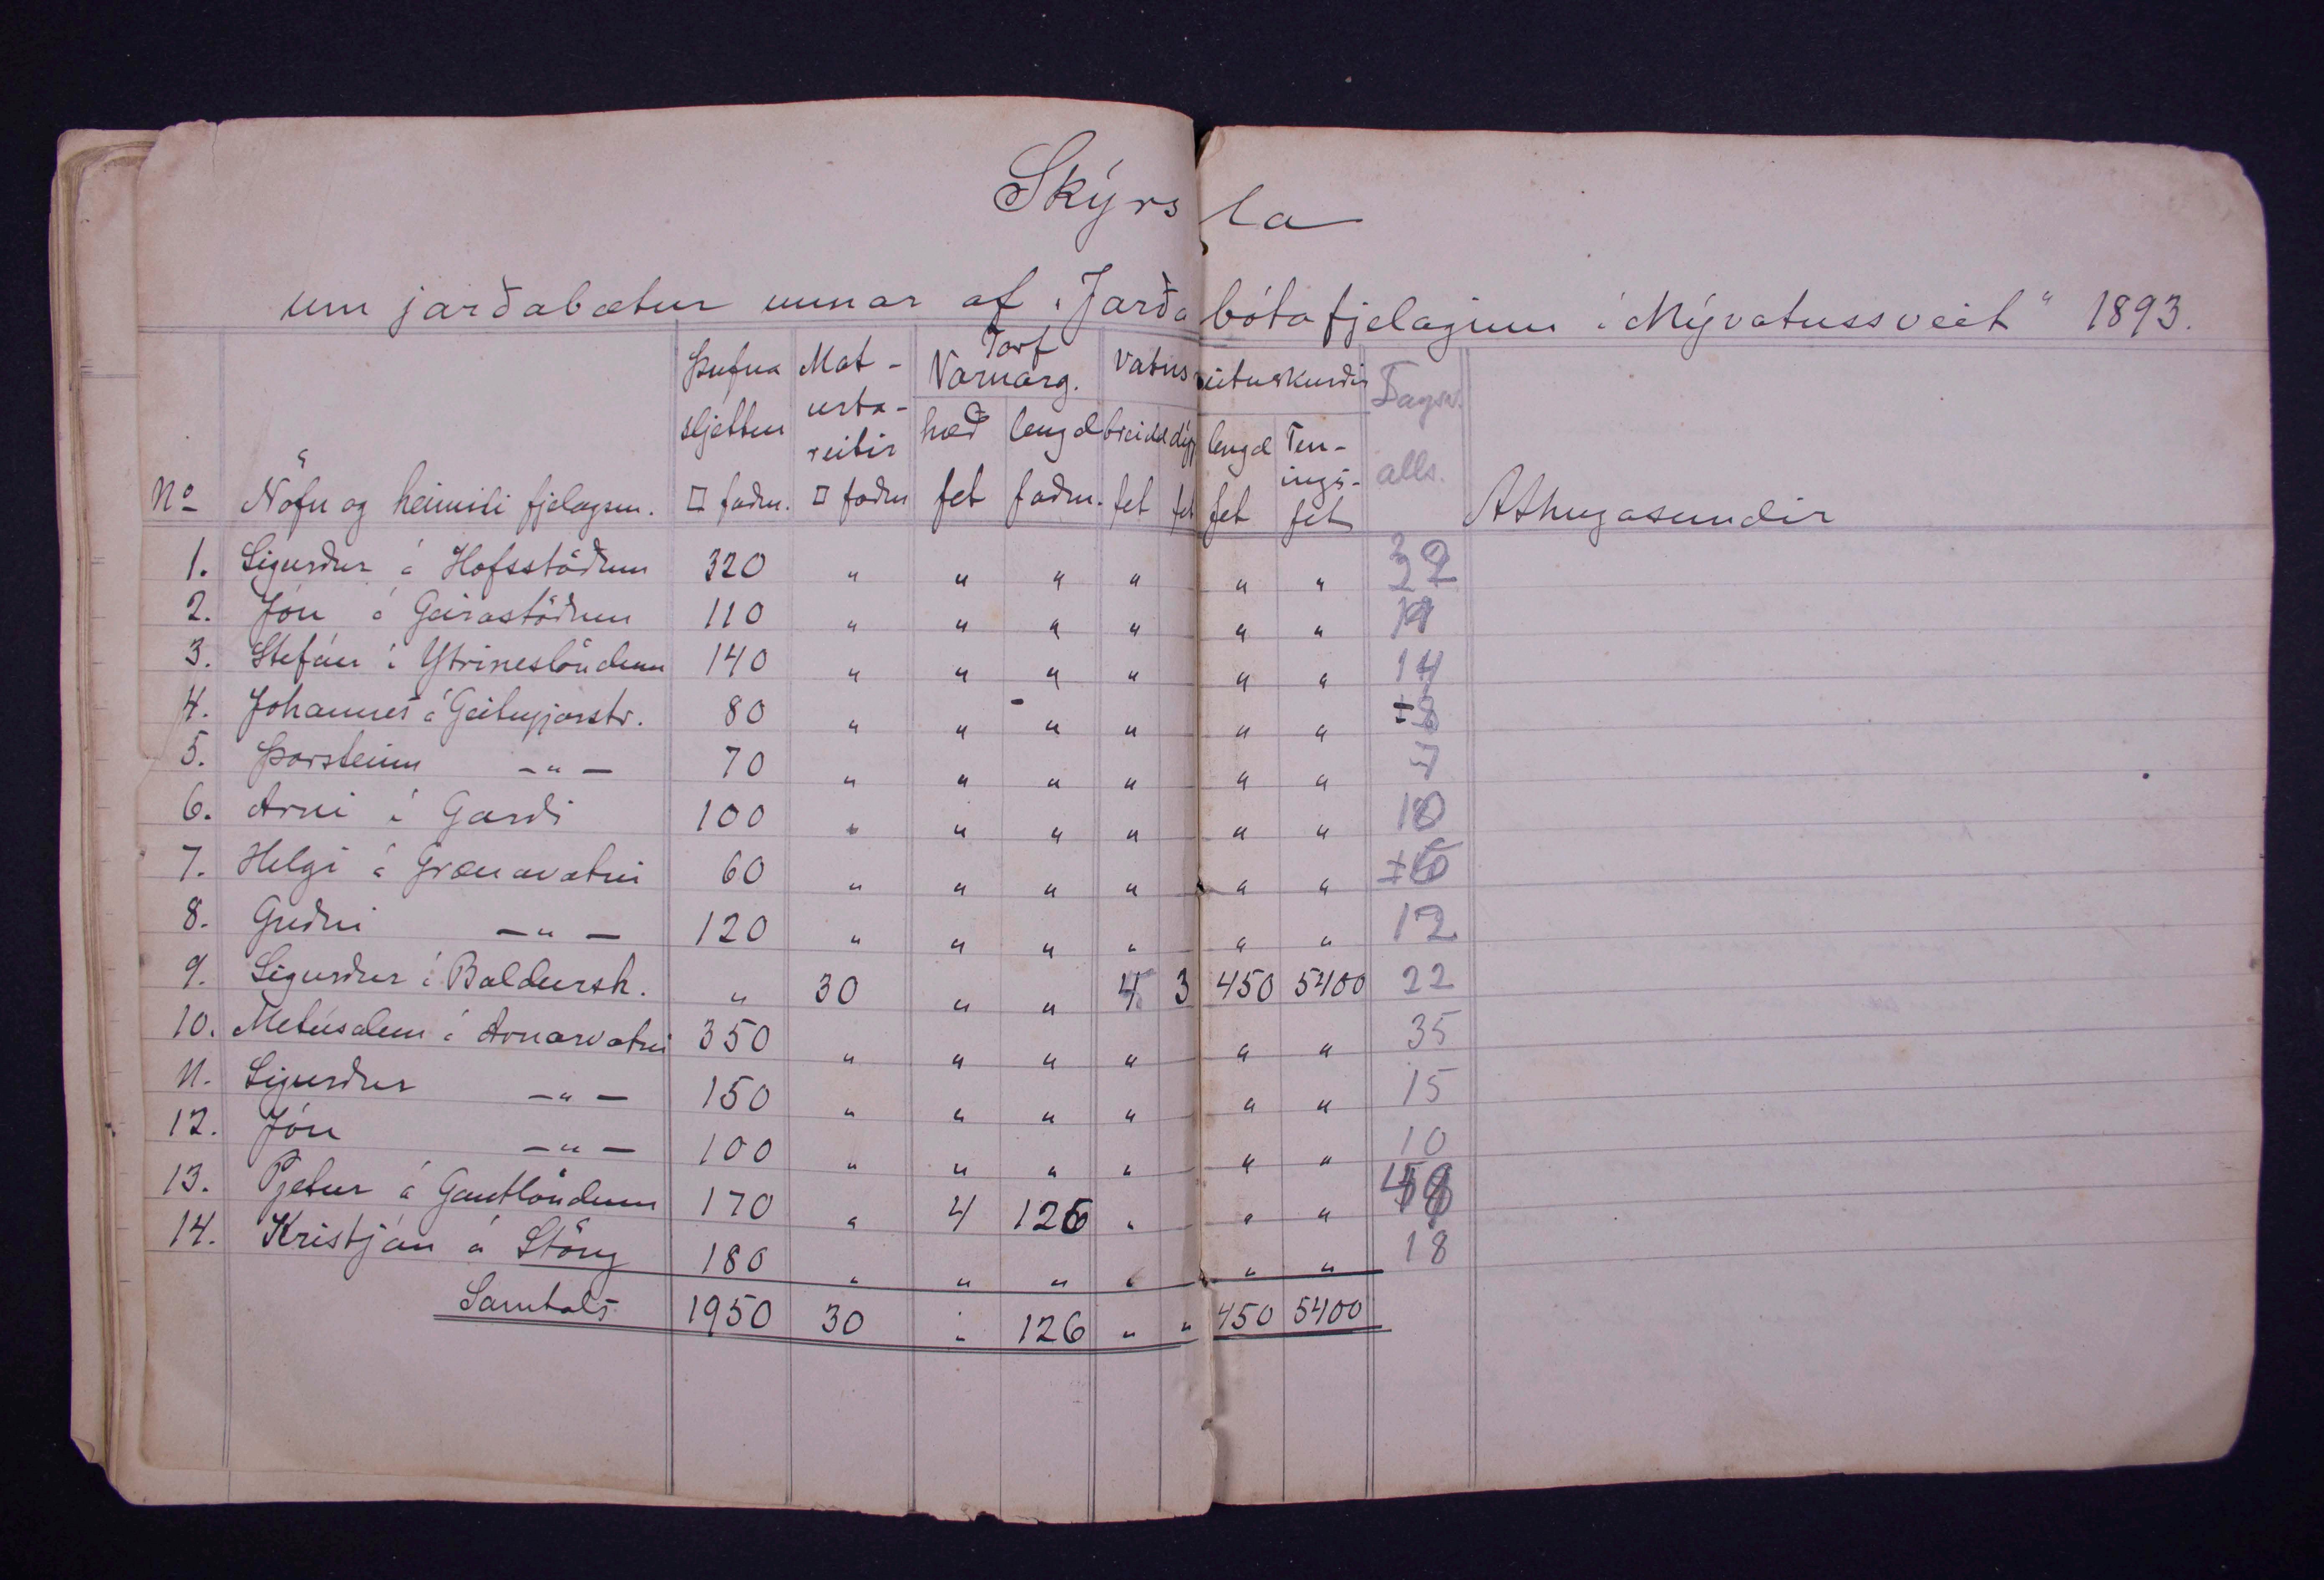 Skýrsla
um jarðabætur unnar af „Jarðabótafjelaginu í Mývatnssveit" 1893.
No Nöfn og heimili fjelagsm. Þufna sljettun □ faðm. Mat- urta- reitir □ faðm Torf Varnarg. hæð fet lengd faðm. Vatnsveituskurðir breidd fet dýp fet lengd fet Ten- ings- fet Dagsv. alls. Athugasemdir
1. Sigurður á Hofsstöðum 320 " " " " " " 32
2. Jón á Geirastöðum 110 " " " " " " 11
3. Stefán í Ytrineslöndum 140 " " " " " " 14
4. Johannes á Geiteyjarstr. 80 " " " " " " 8
5. Þorsteinn -"- 70 " " " " " " 7
6. Arni í Garði 100 " " " " " " 10
7. Helgi á Grænavatni 60 " " " " " " 6
8. Guðni -"- 120 " " " " " " 12
9. Sigurður í Baldursh. " 30 " " 4 3 450 5400 22
10. Metúsalem á Arnarvatni 350 " " " " " " 35
11. Sigurður -"- 150 " " " " " " 15
12. Jón -"- 100 " " " " " " 10
13. Pjetur á Gautlöndum 170 " 4 126 " " "
14. Kristján á Stöng 180 " " " " " " 18
Samtals 1950 30 " 126 " " 450 5400